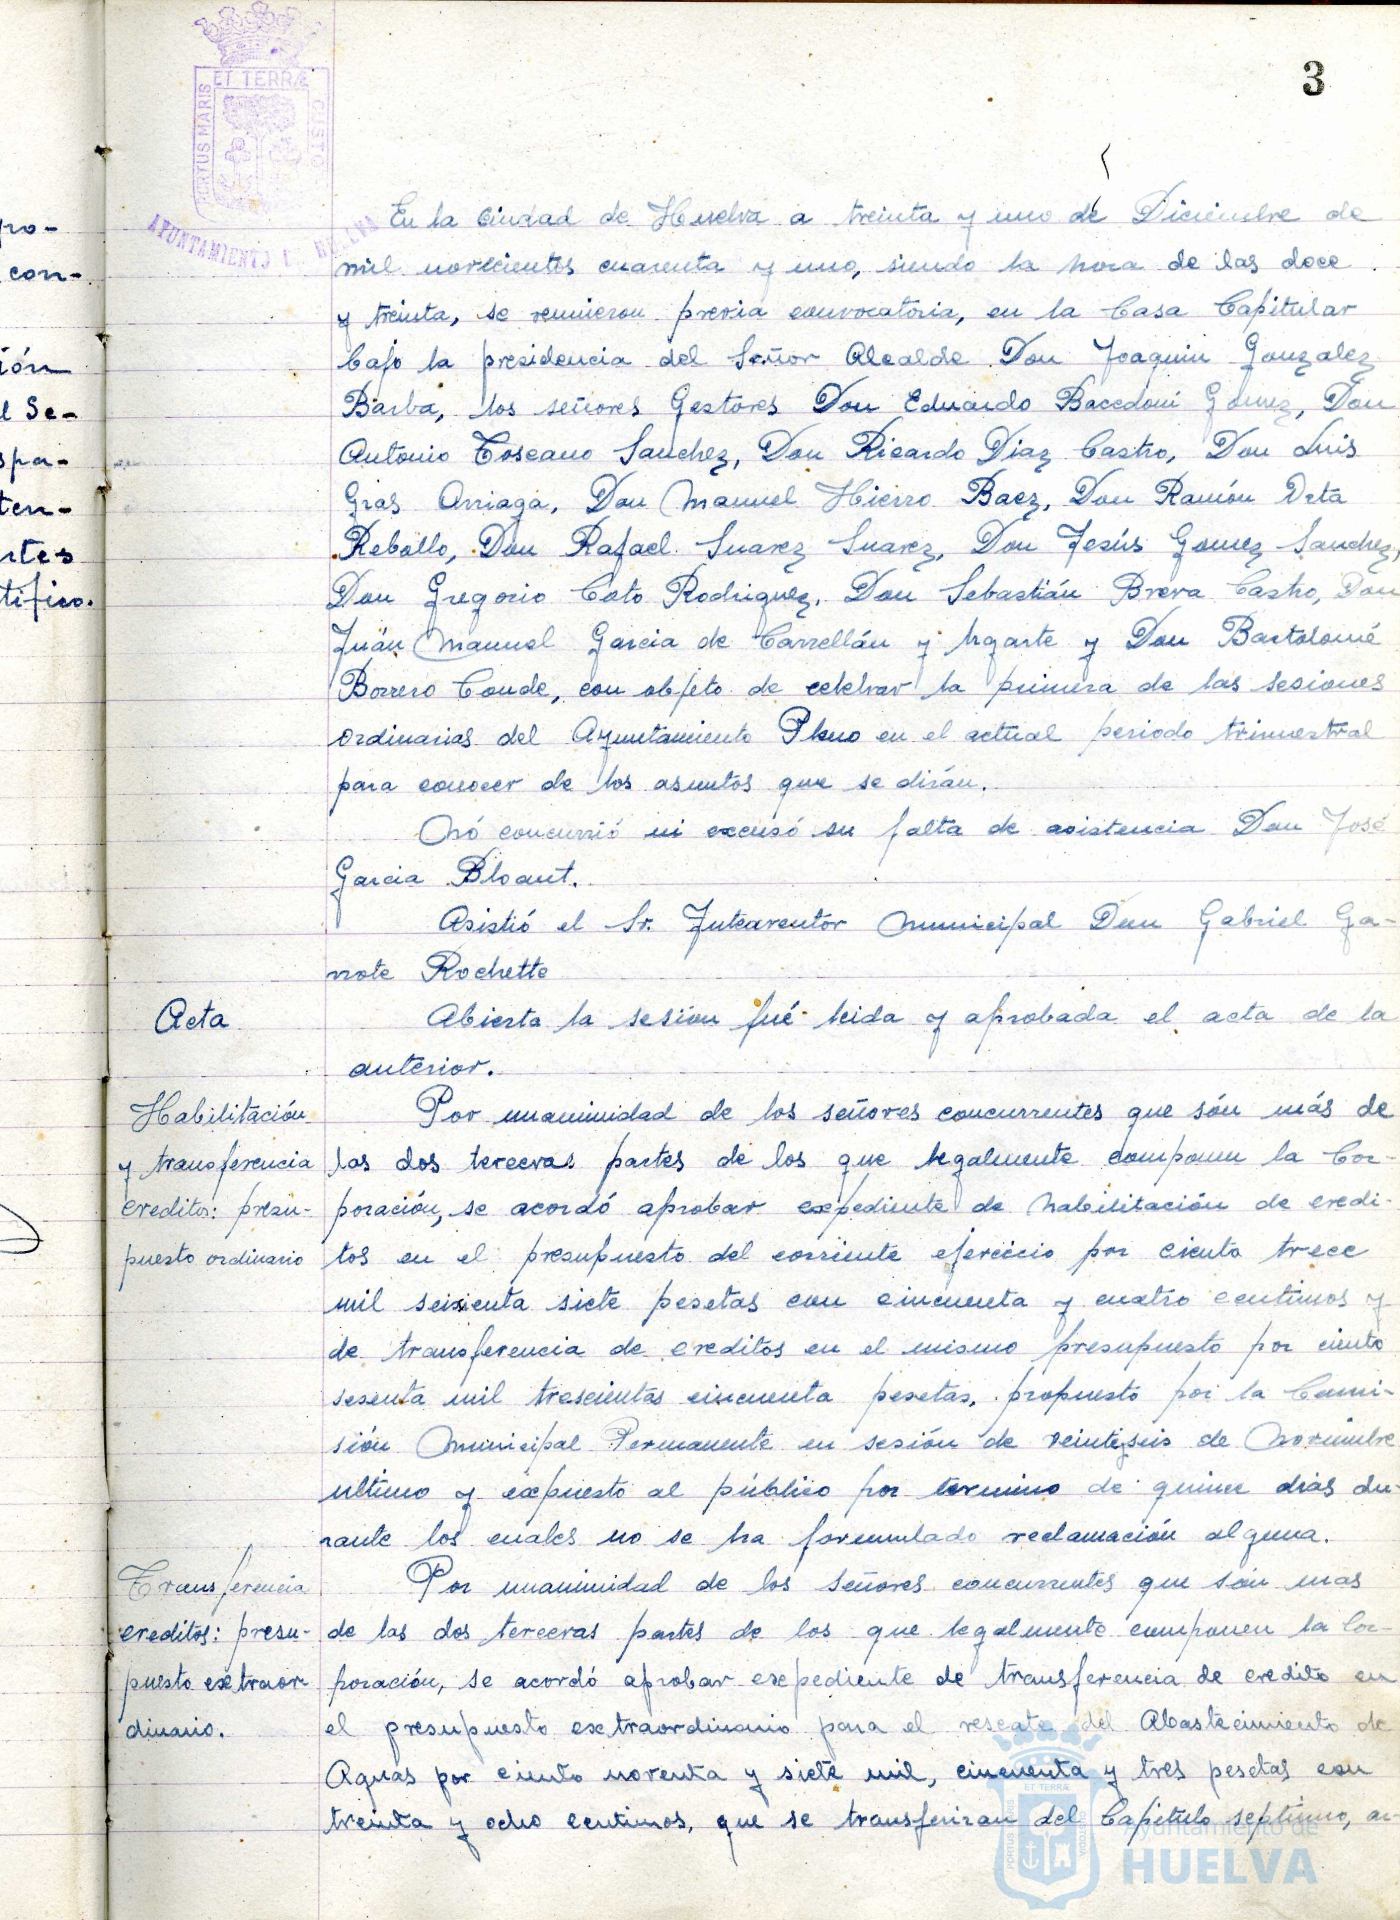 3
PORTUS MARIS ET TERRÆ CUSTO
AYUNTAMIENTO DE HUELVA
pro-
con-
ión
l Se-
spa-
ten-
rtes
tifico.
En la Ciudad de Huelva a treinta y uno de Diciembre de
mil novecientos cuarenta y uno, siendo la hora de las doce
y treinta, se reunieron previa convocatoria, en la Casa Capitular
bajo la presidencia del Señor Alcalde Don Joaquin Gonzalez
Barba, los señores Gestores Don Eduardo Bacedoni Gomez, Don
Antonio Toscano Sanchez, Don Ricardo Diaz Castro, Don Luis
Gras Arriaga, Don Manuel Hierro Baez, Don Ramón Orta
Rebollo, Don Rafael Suarez Suarez, Don Jesús Gomez Sanchez,
Don Gregorio Coto Rodriguez, Don Sebastián Breva Castro, Don
Juán Manuel Garcia de Carrellán y Ugarte y Don Bartolomé
Borrero Conde, con objeto de celebrar la primera de las sesiones
ordinarias del Ayuntamiento Pleno en el actual periodo trimestral
para conocer de los asuntos que se dirán.
Nó concurrió ni excusó su falta de asistencia Don José
Garcia Bloant.
Asistió el Sr. Interventor Municipal Don Gabriel Ga-
rrote Rochette
Acta
Abierta la sesion fué leida y aprobada el acta de la
anterior.
Habilitación
y transferencia
creditos: presu-
puesto ordinario
Por unanimidad de los señores concurrentes que són más de
las dos terceras partes de los que legalmente componen la Cor-
poración, se acordó aprobar expediente de habilitación de credi-
tos en el presupuesto del corriente ejercicio por ciento trece
mil seixenta siete pesetas con cincuenta y cuatro centimos y
de transferencia de creditos en el mismo presupuesto por ciento
sesenta mil trescientas cincuenta pesetas, propuesto por la Comi-
sión Municipal Permanente en sesión de veintiseis de Noviembre
ultimo y expuesto al público por termino de quince dias du-
rante los cuales no se ha formulado reclamación alguna.
Transferencia
creditos: presu-
puesto extraor-
dinario.
Por unanimidad de los señores concurrentes que són mas
de las dos terceras partes de los que legalmente componen la Cor-
poración, se acordó aprobar expediente de transferencia de credito en
el presupuesto extraordinario para el rescate del Abastecimiento de
Aguas por ciento noventa y siete mil, cincuenta y tres pesetas con
treinta y ocho centimos, que se transferiran del Capitulo septimo, ar-
Ayuntamiento de
HUELVA